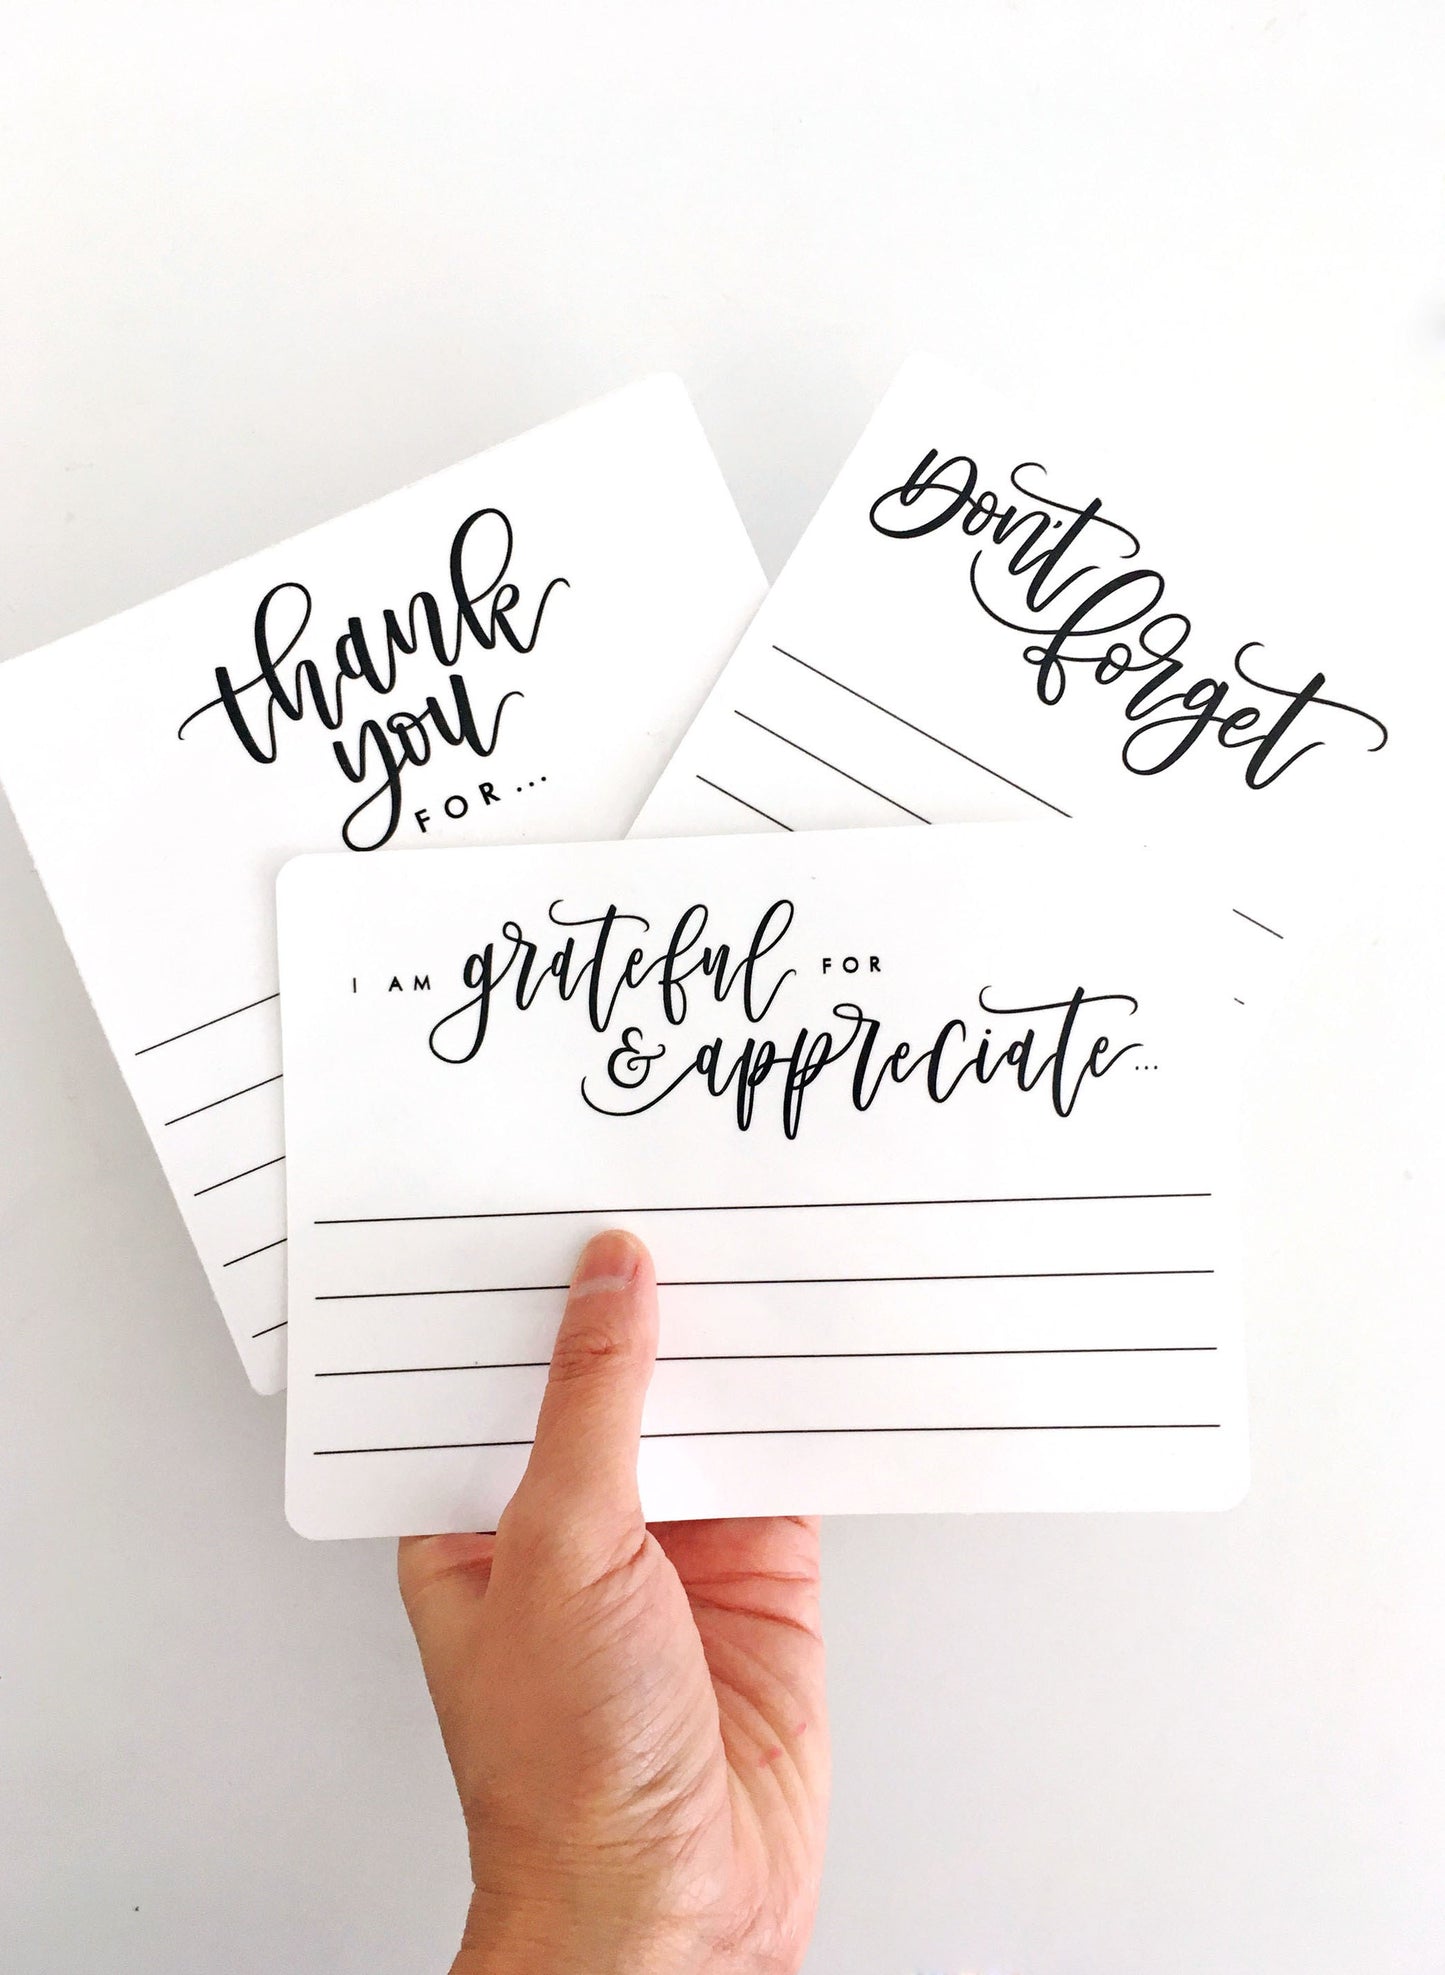 thank
you
FOR...
Don't
forget
I AM grateful FOR
& appreciate...